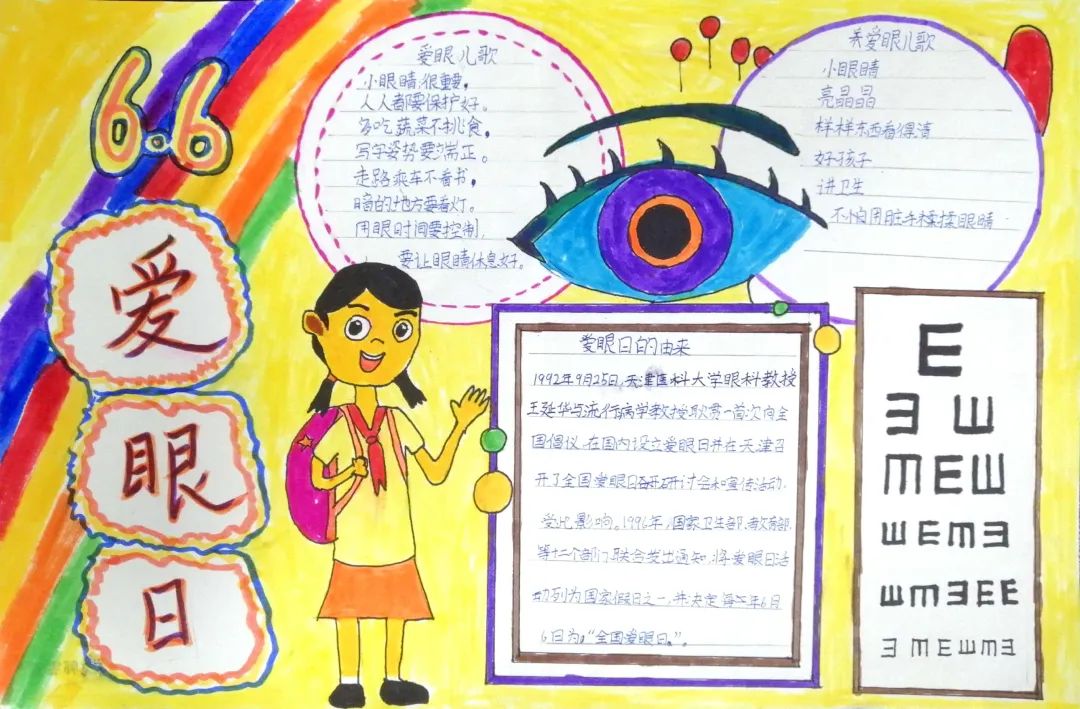 6.6
爱
眼
日
爱眼儿歌
小眼睛,很重要,
人人都要保护好。
多吃蔬菜不挑食,
写字姿势要端正。
走路乘车不看书,
暗的地方要看灯。
用眼时间要控制,
要让眼睛休息好。
爱眼儿歌
小眼睛
亮晶晶
样样东西看得清
好孩子
讲卫生
不怕用脏手揉揉眼睛
爱眼日的由来
1992年9月25日,天津医科大学眼科教授
王延华与流行病学教授耿贯一首次向全
国倡议,在国内设立爱眼日并在天津召
开了全国爱眼日研讨会和宣传活动.
受此影响。1996年,国家卫生部,教育部.
等十二个部门联合发出通知,将爱眼日活
动列为国家假日之一,并决定每年6月
6日为“全国爱眼日。”。
E
Ǝ Ш
M E Ш
Ш E M Ǝ
Ш M Ǝ E E
Ǝ M E Ш M Ǝ